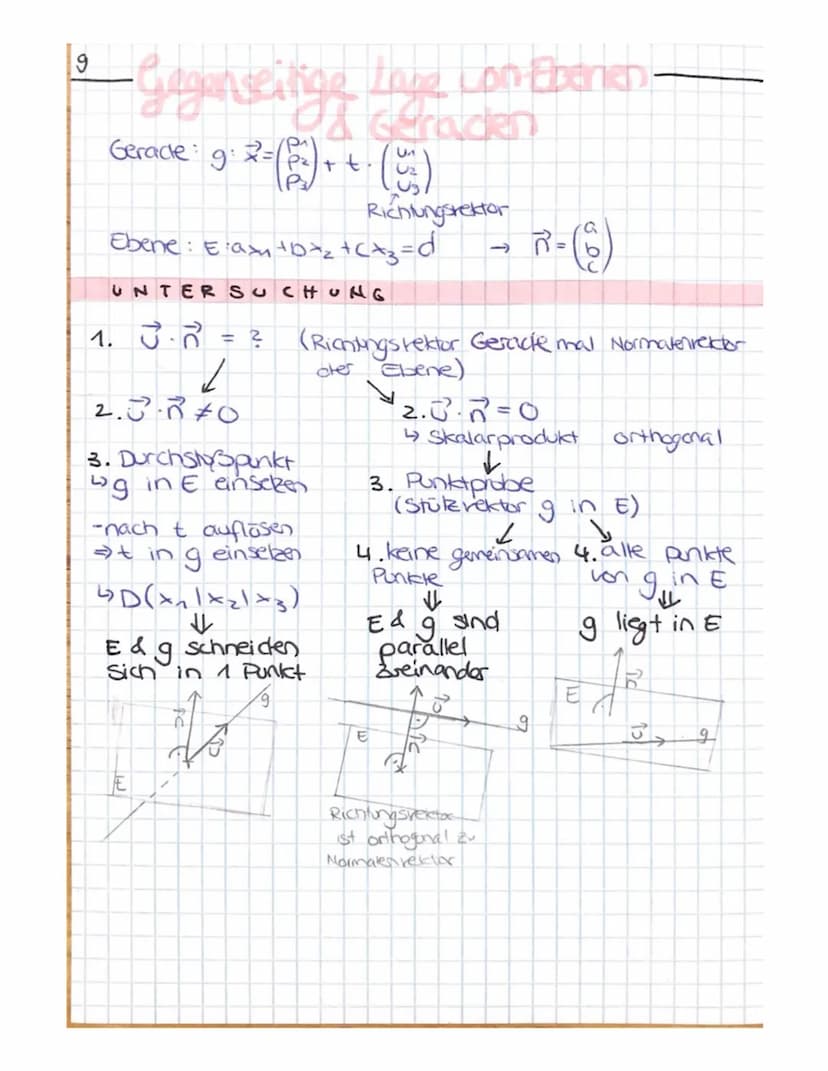 9
Gegenseitige Lage von Ebenen
& Geraden
Gerade: g: x⃗ = (p1 p2 p3) + t · (u1 u2 u3)
Richtungsvektor
Ebene: E: ax1 + bx2 + cx3 = d → n⃗ = (a b c)
UNTERSUCHUNG
1. u⃗ · n⃗ = ? (Richtungsvektor Gerade mal Normalenvektor
der Ebene)
2. u⃗ · n⃗ ≠ 0
3. Durchstoßpunkt
↳ g in E einsetzen
- nach t auflösen
⇒ t in g einsetzen
↳ D(x1|x2|x3)
⇓
E & g schneiden
sich in 1 Punkt
2. u⃗ · n⃗ = 0
↳ Skalarprodukt orthogonal
3. Punktprobe
(Stützvektor g in E)
4. keine gemeinsamen
Punkte
⇓
E & g sind
parallel
zueinander
4. alle Punkte
von g in E
⇓
g liegt in E
n⃗ g
u⃗
E
u⃗
g
E
n⃗
n⃗
E
u⃗ g
Richtungsvektor
ist orthogonal zu
Normalenvektor